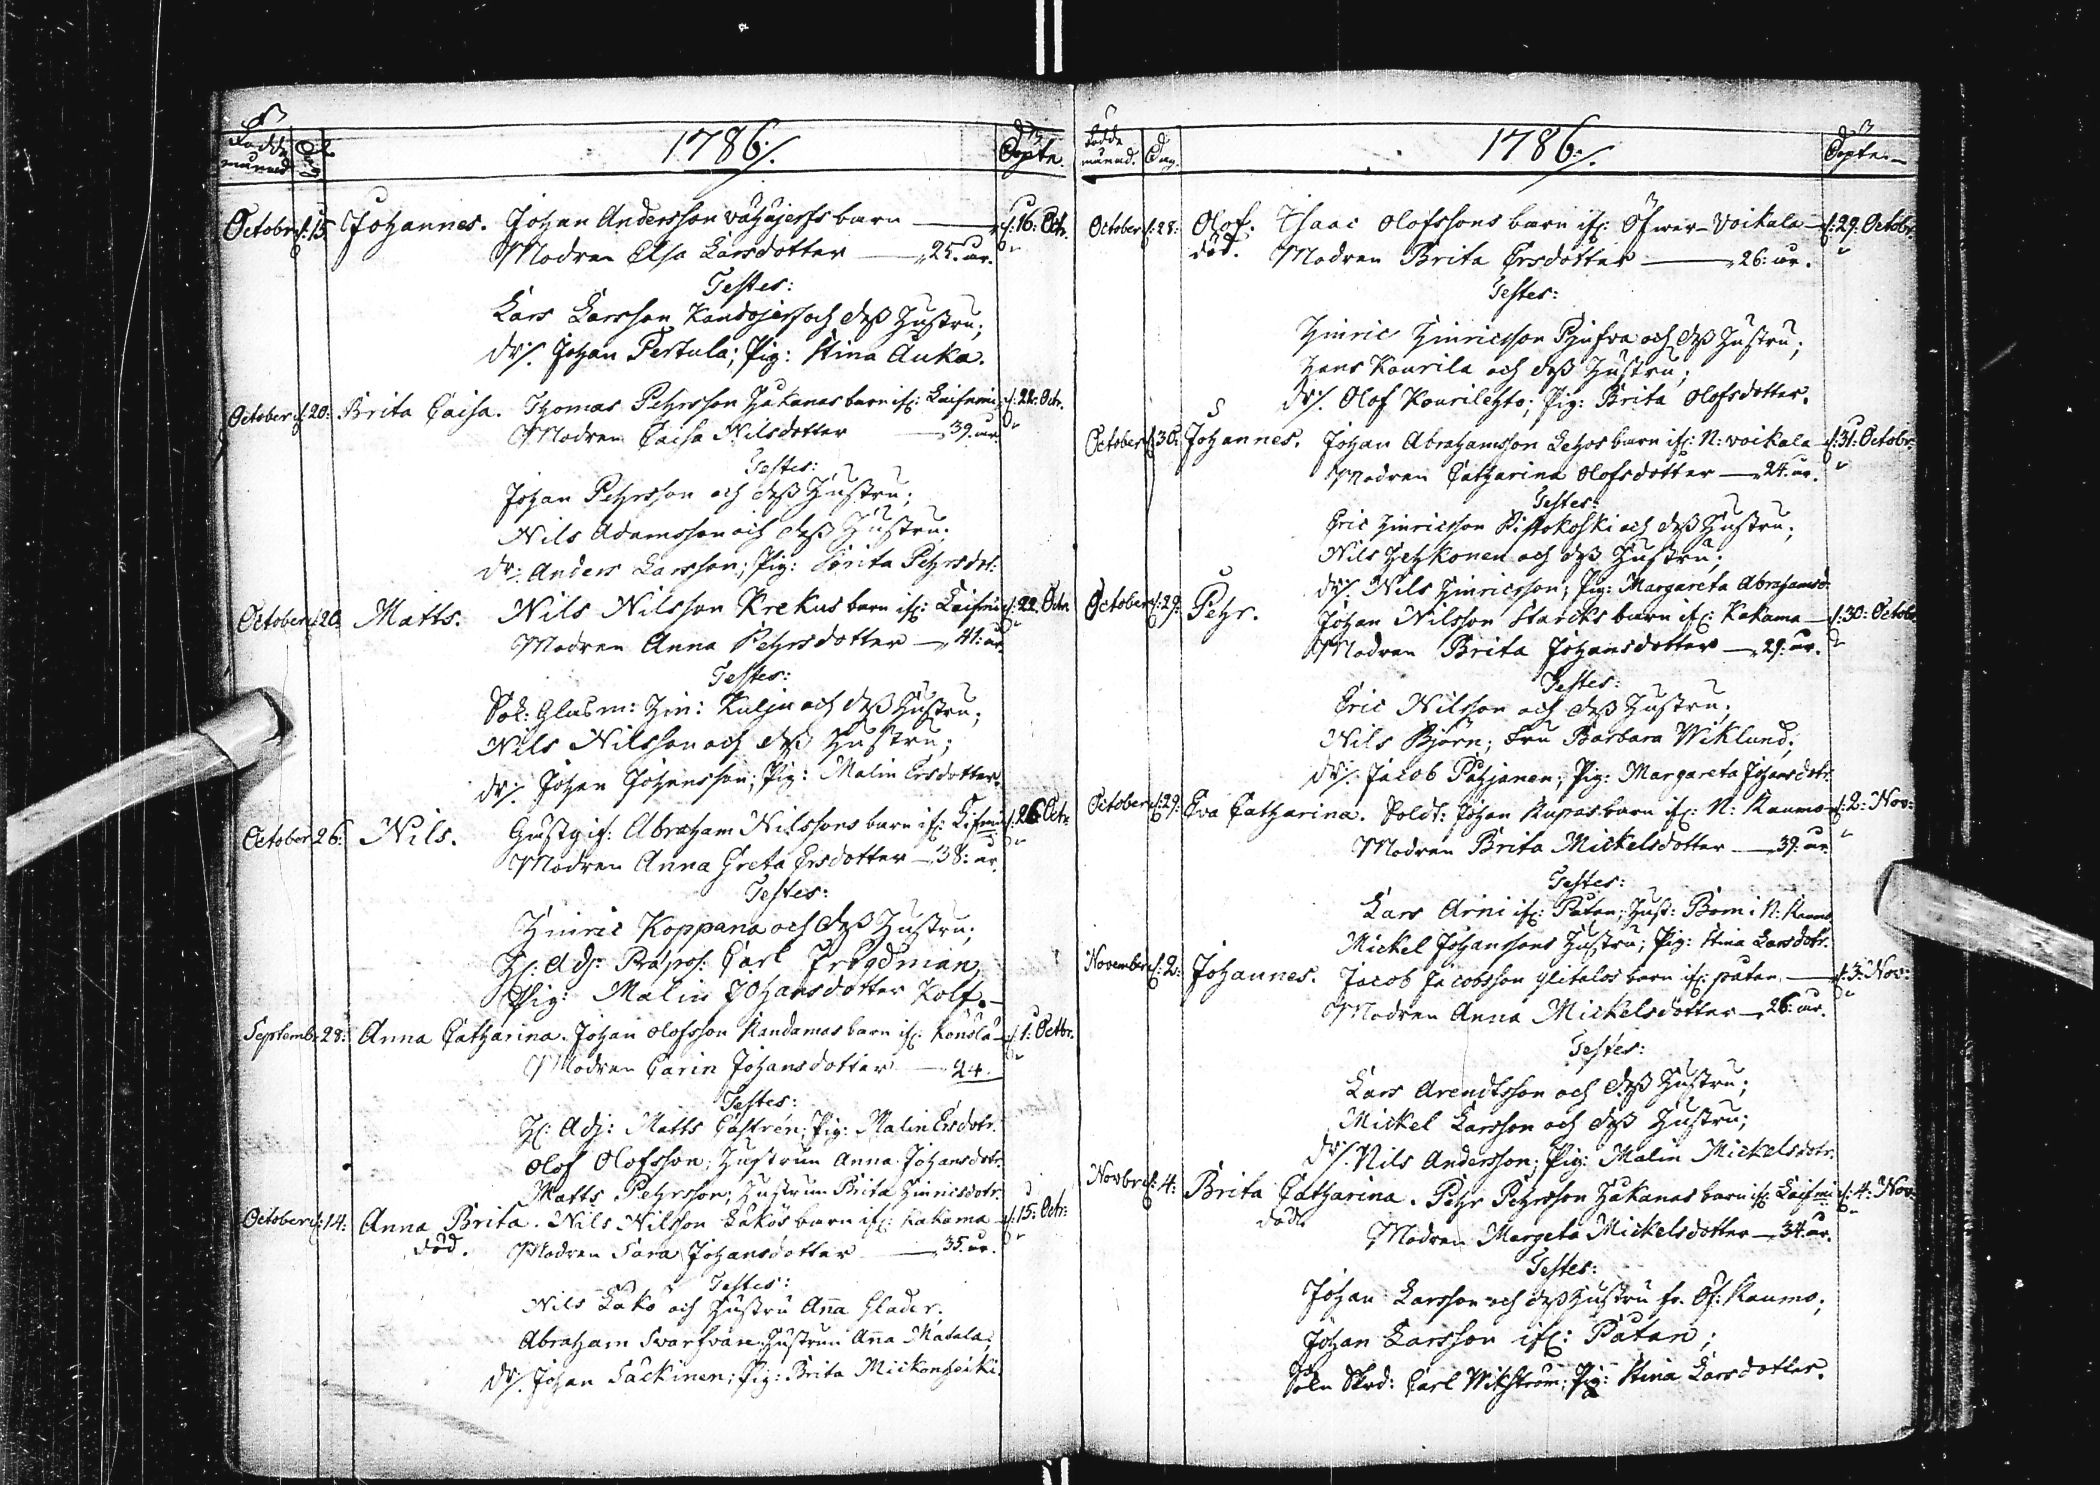 Födde månad
Dag
1786./.
Döpte.
October d: 15 Johannes. Johan Andersson barn d: 16: Octr.
Modren Elsa Larsdotter 25. år.
Testes:
Lars Larsson och dess Hustru;
dr/. Johan Pertula; Pig: Stina Auka.
October d: 20: Brita Caisa. Thomas Pehrsson Hakanas barn if: d: 22: Octr.
Modren Caisa Nilsdotter 39. år.
Testes:
Johan Pehrsson och dess Hustru;
Nils Adamsson och dess Hustru;
dr: Anders Larsson; Pig: Brita Pehrsdot:
October d: 20 Matts. Nils Nilsson Krekus barn if: d: 22. Octr.
Modren Anna Pehrsdotter 41: år.
Testes:
Sok: Glasm: Hin: Kulju och dess Hustru;
Nils Nilsson och dess Hustru;
dr/. Johan Johansson; Pig: Malin Ersdotter.
October 26: Nils. Gästgif: Abraham Nilssons barn if: d: 26 Octr:
Modren Anna Greta Ersdotter 38: år.
Testes:
Hinric Koppana och dess Hustru;
H: Adj: Præpos: Carl
Pig: Malin Johansdotter Kolf.
Septemb: 28: Anna Catharina. Johan Olofsson Kandamas barn if: d: 1: Octbr.
Modren Carin Johansdotter 24.
Testes:
H: Adj: Matts Castrén; Pig: Malin Ersdotr.
Olof Olofsson; Hustrun Anna Johansdotr.
Matts Pehrsson; Hustrun Brita Hinricsdotr.
October d: 14: Anna Brita. Nils Nilsson Läkös barn if: Kakama d: 15: Octr:
död. Modren Sara Johansdotter 35. år.
Testes:
Nils Läkö och Hustru Aña Glader;
Abraham Swartswan Hustrun Aña Matala;
dr/. Johan Säckinen; Pig: Brita Mickonheiki.
Födde månad.
Dag.
1786./.
Döpte.
October d: 28: Olof. Isaac Olofssons barn if: Öfwer-Voikala d: 29. Octobr.
död. Modren Brita Ersdotter 26: år.
Testes:
Hinric Hinricsson och dess Hustru;
Hans Kourila och dess Hustru;
dr/. Olof Kourilehto; Pig: Brita Olofsdotter.
October d: 30: Johannes. Johan Abrahamsson Lehos barn if: N: Voikala d: 31: Octobr.
Modren Catharina Olofsdotter 24. år.
Testes:
Eric Hinricsson och dess Hustru;
Nils och dess Hustru;
dr/. Nils Hinricsson; Pig: Margareta Abrahamsd.
October d: 29: Pehr. Johan Nilsson Starcks barn if: Kakama d: 30: Octobr.
Modren Brita Johansdotter 29: år.
Testes:
Eric Nilsson och dess Hustru;
Nils Björn; Fru Barbara Wiklund;
dr/. Jacob Pahjanen; Pig: Margareta Johansdotr.
October d: 29: Eva Catharina. Soldt: Johan Kupas barn if: N: Raumo d: 2: Nov:
Modren Brita Mickelsdotter 39: år.
Testes:
Lars Arni if: Pätan; Hust: Bom i N: Raumo.
Mickel Johanssons Hustru; Pig: Stina Larsdotr.
November d: 2: Johannes. Jacob Jacobsson Ylitalos barn if: Pätan. d: 3: Nov:
Modren Anna Mickelsdotter 26: år.
Testes:
Lars Arendtsson och dess Hustru;
Mickel Larsson och dess Hustru;
dr/. Nils Andersson; Pig: Malin Mickelsdotr.
Novbr d: 4: Brita Catharina. Pehr Pehrsson Hakanas barn if: d: 4: Nov:
död. Modren Margeta Mickelsdotter 34. år.
Testes:
Johan Larsson och dess Hustru fr. Öf: Raumo;
Johan Larsson if: Pätan;
Soln Skrd: Carl Wikström; Pig: Stina Larsdotter.